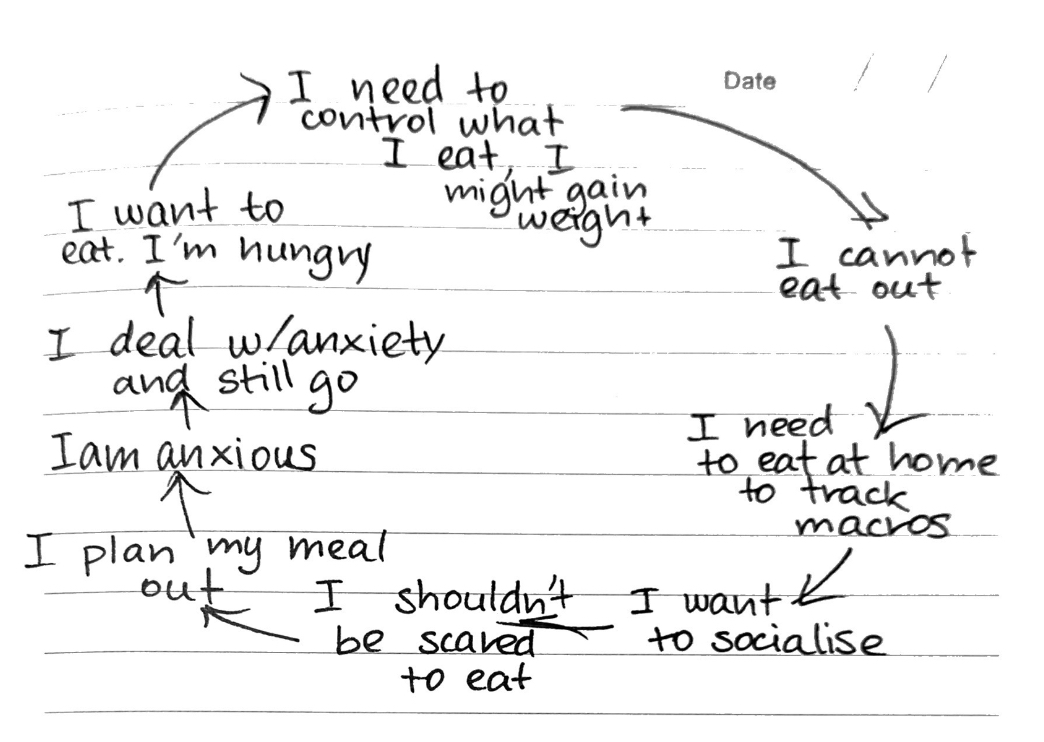 Date / /
I need to
control what
I eat, I
might gain
weight
I cannot
eat out
I need
to eat at home
to track
macros
I want
to socialise
I shouldn't
be scared
to eat
I plan my meal
out
I am anxious
I deal w/anxiety
and still go
I want to
eat. I'm hungry